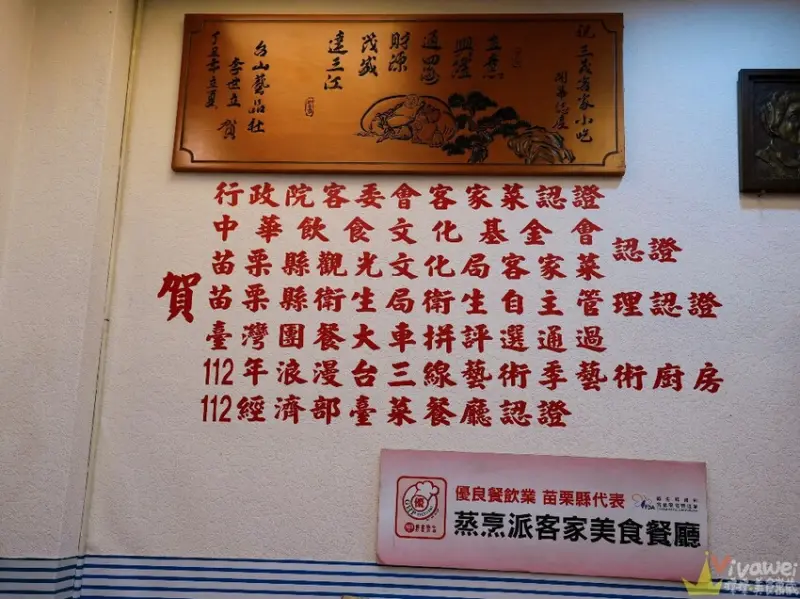 祝三義客家小吃
開幕誌慶
生意
興隆
通四海
財源
茂盛
達三江
台山藝品社
李世立 賀
丁丑年立夏
賀
行政院客委會客家菜認證
中華飲食文化基金會
苗栗縣觀光文化局客家菜
認證
苗栗縣衛生局衛生自主管理認證
臺灣團餐大車拼評選通過
112年浪漫台三線藝術季藝術廚房
112經濟部臺菜餐廳認證
優
GHP
優良餐飲業 苗栗縣代表
蒸烹派客家美食餐廳
FDA
Viyawei